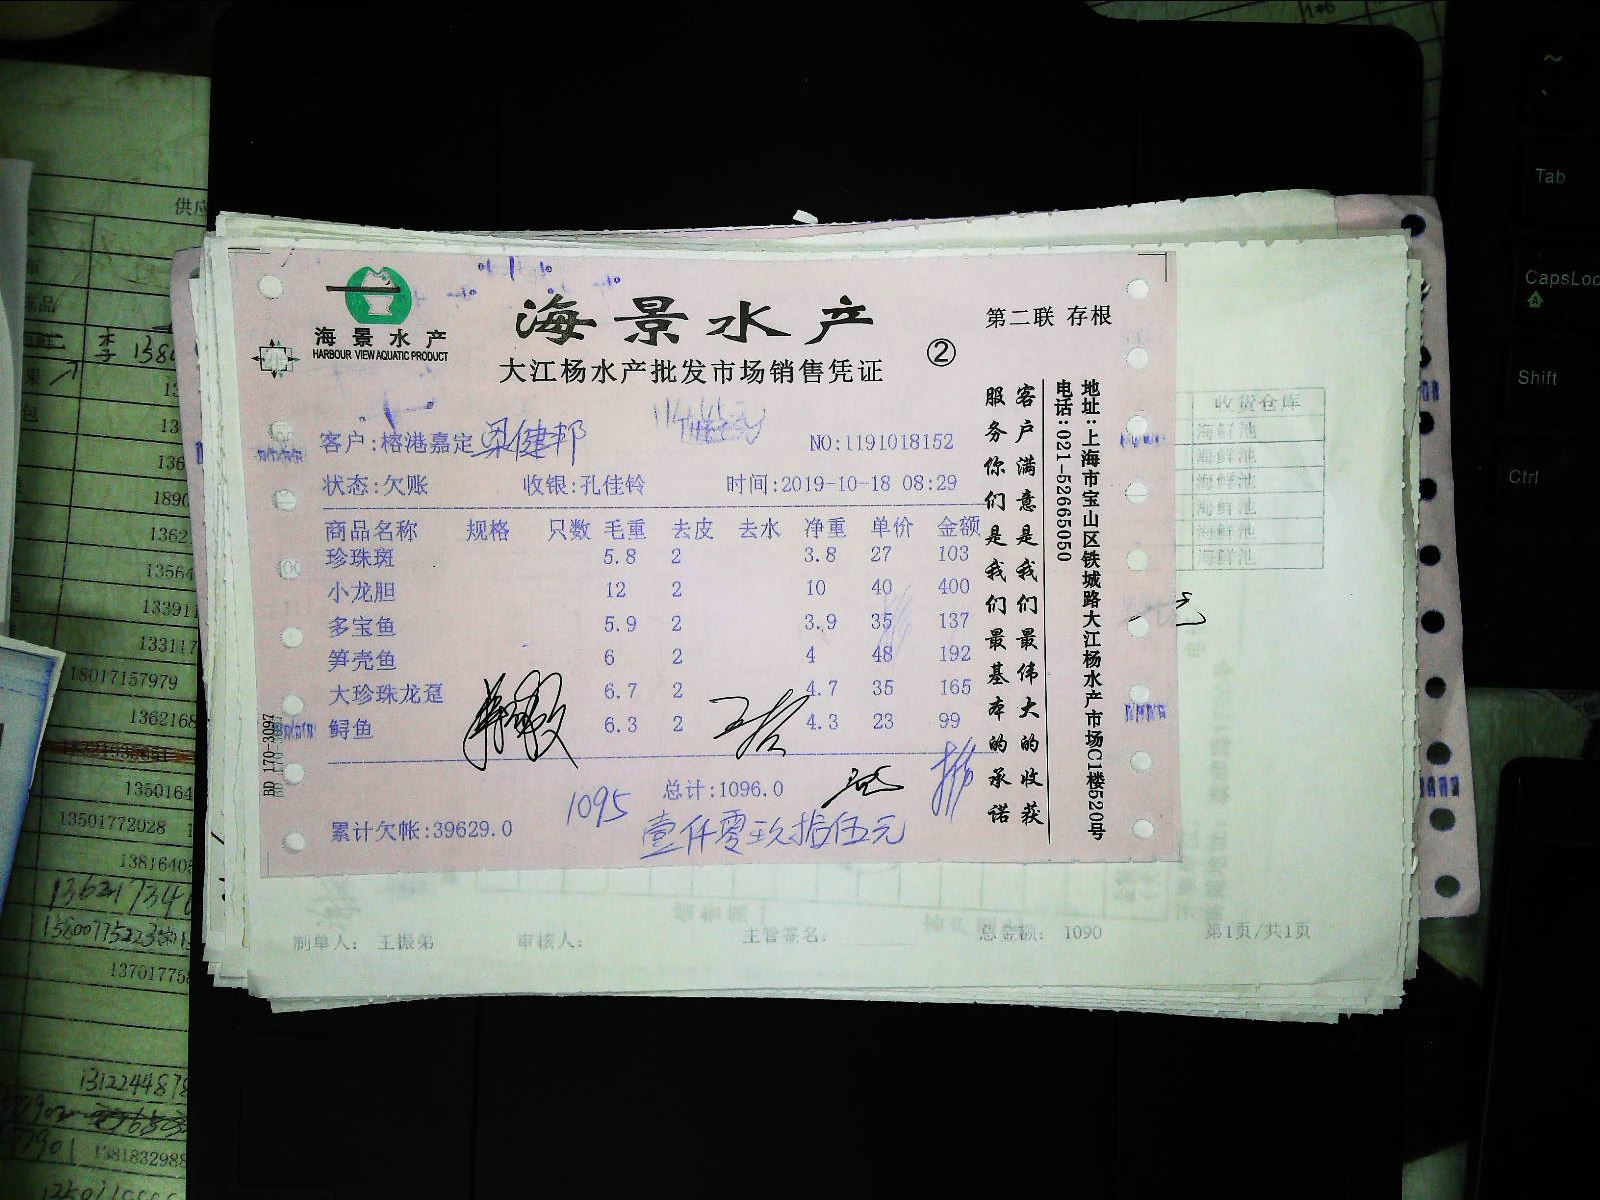 海景水产
HARBOUR VIEW AQUATIC PRODUCT
海景水产
大江杨水产批发市场销售凭证
②
第二联 存根
客户:榕港嘉定 梁健邦
NO:1191018152
状态:欠账 收银:孔佳铃 时间:2019-10-18 08:29
商品名称 规格 只数 毛重 去皮 去水 净重 单价 金额
珍珠斑 5.8 2 3.8 27 103
小龙胆 12 2 10 40 400
多宝鱼 5.9 2 3.9 35 137
笋壳鱼 6 2 4 48 192
大珍珠龙趸 6.7 2 4.7 35 165
鲟鱼 6.3 2 4.3 23 99
总计:1096.0
1095
累计欠帐:39629.0
壹仟零玖拾伍元
客户满意是我们最伟大的收获
服务你们是我们最基本的承诺
地址:上海市宝山区铁城路大江杨水产市场C1楼520号
电话:021-52665050
BD 170-3097
收货仓库
海鲜池
海鲜池
海鲜池
海鲜池
海鲜池
海鲜池
制单人: 王振弟 审核人: 主管签名: 总金额: 1090 第1页/共1页
供应
李 1384
1362
13564
13391
13317
18017157979
1362168
1350164
13501772028
1381640
1370177
13122448
1381832988
1*6
Tab
CapsLoc
Shift
Ctrl